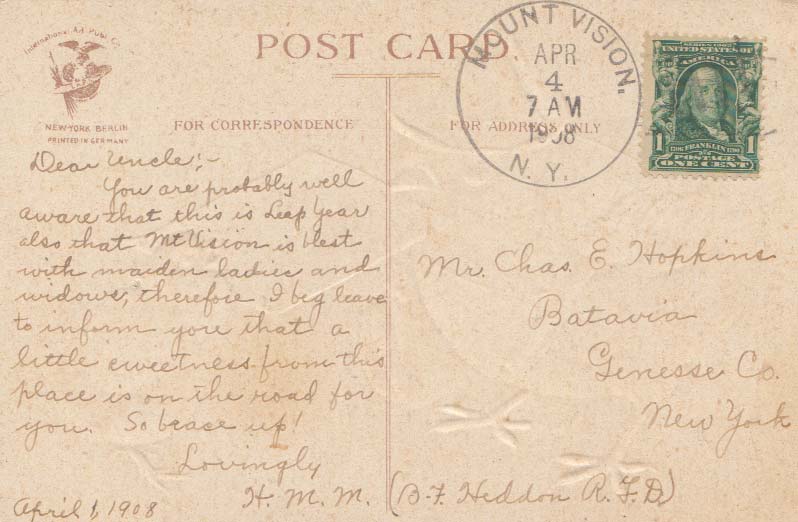 International Art Publ. Co.
NEW-YORK BERLIN
PRINTED IN GERMANY
POST CARD.
FOR CORRESPONDENCE
FOR ADDRESS ONLY
MOUNT VISION.
APR
4
7 AM
1908
N.Y.
SERIES 1902
UNITED STATES OF
AMERICA
1 1706 FRANKLIN 1790 1
POSTAGE
ONE CENT
Dear Uncle:-
You are probably well
aware that this is Leap Year
also that Mt Vision is blest
with maiden ladies and
widows, therefore I beg leave
to inform you that a
little sweetness from this
place is on the road for
you. So brace up!
Lovingly
H. M. M.
April 1, 1908
Mr. Chas. E. Hopkins
Batavia
Genesse Co.
New York
(B.F. Heddon R.F.D.)